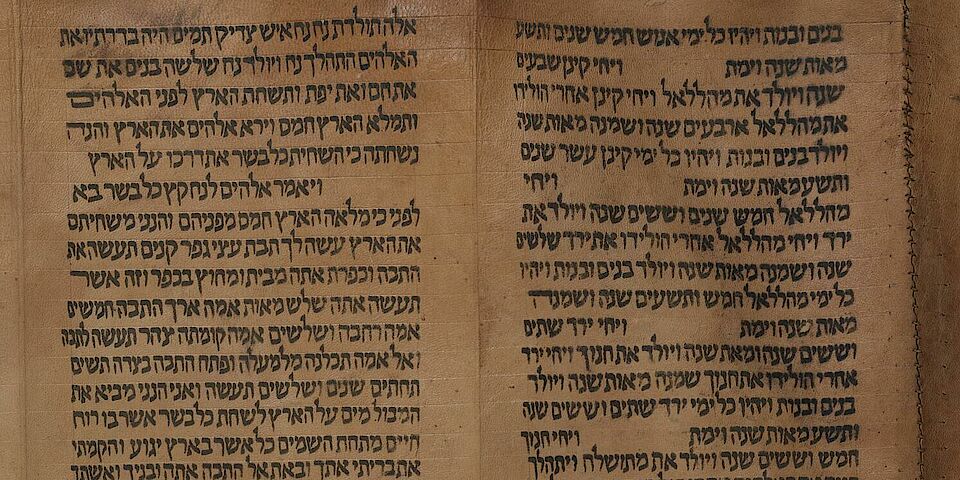 בנים ובנות ויהיו כל ימי אנוש חמש שנים ותשע
מאות שנה וימת ויחי קינן שבעים
שנה ויולד את מהללאל ויחי קינן אחרי הולידו
את מהללאל ארבעים שנה ושמנה מאות שנה
ויולד בנים ובנות ויהיו כל ימי קינן עשר שנים
ותשע מאות שנה וימת ויחי
מהללאל חמש שנים וששים שנה ויולד את
ירד ויחי מהללאל אחרי הולידו את ירד שלשים
שנה ושמנה מאות שנה ויולד בנים ובנות ויהיו
כל ימי מהללאל חמש ותשעים שנה ושמנה
מאות שנה וימת ויחי ירד שתים
וששים שנה ומאת שנה ויולד את חנוך ויחי ירד
אחרי הולידו את חנוך שמנה מאות שנה ויולד
בנים ובנות ויהיו כל ימי ירד שתים וששים שנה
ותשע מאות שנה וימת ויחי חנוך
חמש וששים שנה ויולד את מתושלח ויתהלך
אלה תולדת נח נח איש צדיק תמים היה בדרתיו את
האלהים התהלך נח ויולד נח שלשה בנים את שם
את חם ואת יפת ותשחת הארץ לפני האלהים
ותמלא הארץ חמס וירא אלהים את הארץ והנה
נשחתה כי השחית כל בשר את דרכו על הארץ
ויאמר אלהים לנח קץ כל בשר בא
לפני כי מלאה הארץ חמס מפניהם והנני משחיתם
את הארץ עשה לך תבת עצי גפר קנים תעשה את
התבה וכפרת אתה מבית ומחוץ בכפר וזה אשר
תעשה אתה שלש מאות אמה ארך התבה חמשים
אמה רחבה ושלשים אמה קומתה צהר תעשה לתבה
ואל אמה תכלנה מלמעלה ופתח התבה בצדה תשים
תחתים שנים ושלשים תעשה ואני הנני מביא את
המבול מים על הארץ לשחת כל בשר אשר בו רוח
חיים מתחת השמים כל אשר בארץ יגוע והקמתי
את בריתי אתך ובאת אל התבה אתה ובניך ואשתך